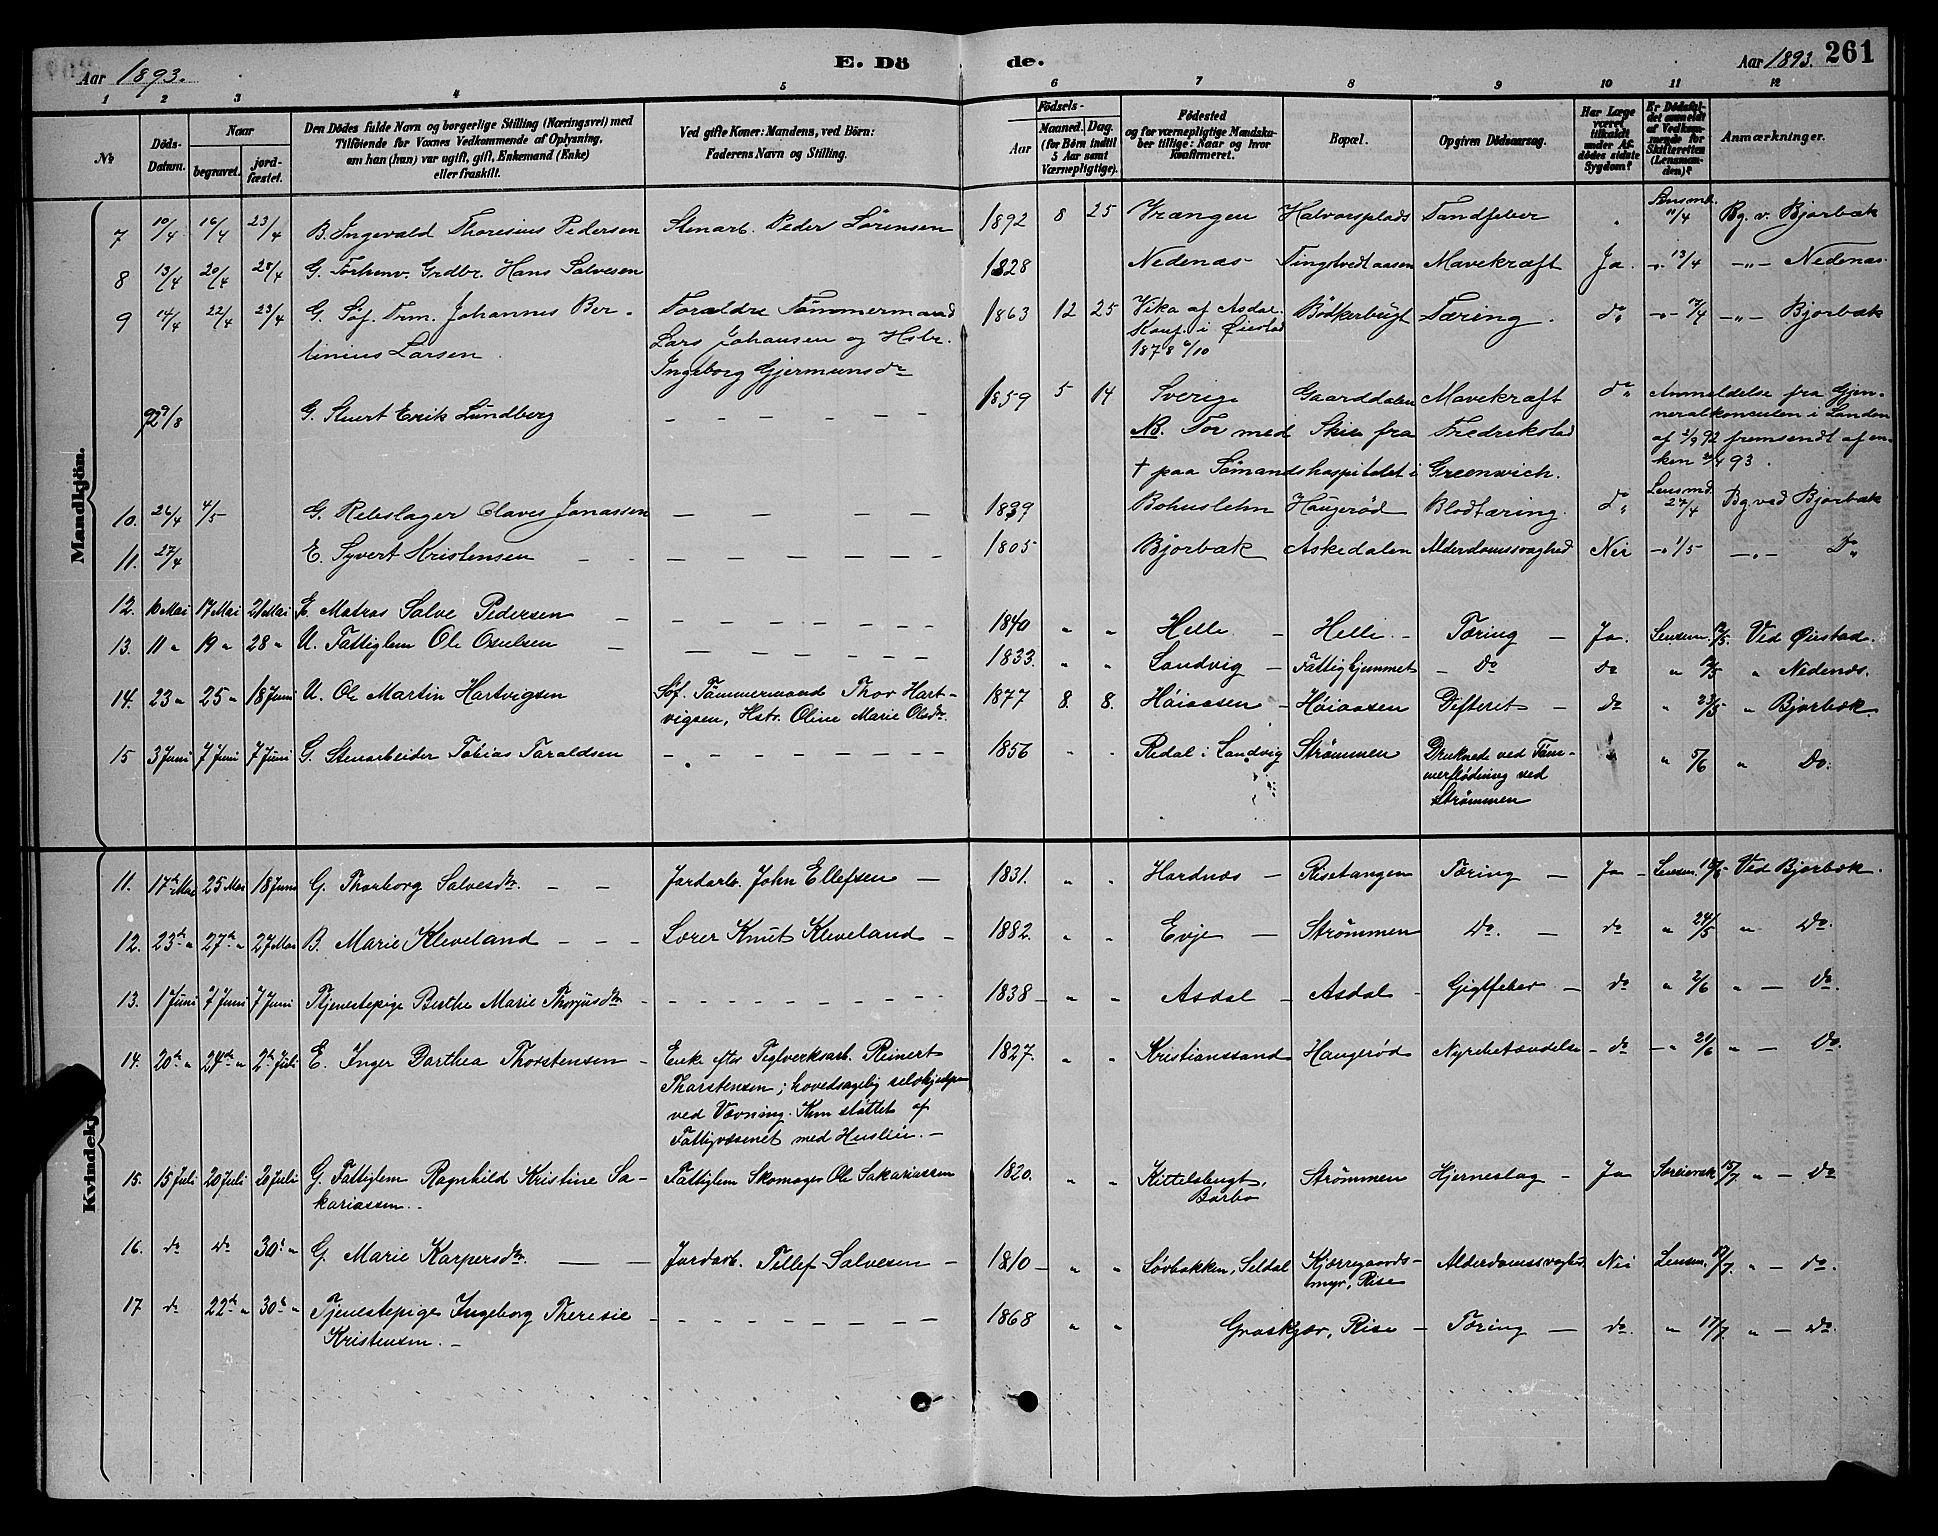 Aar 1893. E. Dö de. Aar 1893. 261
1 2 3 4 5 6 7 8 9 10 11 12
No
Döds-Datum.
Naar begravet. jordfæstet.
Den Dödes fulde Navn og borgerlige Stilling (Næringsvei) med
Tilföiende for Voxnes Vedkommende af Oplysning,
om han (hun) var ugift, gift, Enkemand (Enke)
eller fraskilt.
Ved gifte Koner: Mandens, ved Börn:
Faderens Navn og Stilling.
Födsels-
Aar Maaned. Dag.
(for Börn indtil 5 Aar samt Værnepligtige).
Födested
og for værnepligtige Mandska-
ber tillige: Naar og hvor
Konfirmeret.
Bopæl.
Opgiven Dödsaarsag.
Har Læge været tilkaldt under Afdödes sidste Sygdom?
Er Dödsfaldet anmeldt af Vedkommende for Skifteretten (Lensmanden)?
Anmærkninger.
Mandkjön.
7 10/4 16/4 23/4 B. Ingevald Thoresius Pedersen Stenarb. Peder Sörensen 1892 8 25 Vrængen Halvorsplads Tandfeber " Lensmd. 11/4 Bg. v. Bjorbæk
8 13/4 20/4 28/4 G. Forhenv. Grdbr. Hans Salvesen 1828 Nedenæs Tingstvedtaasen Mavekræft Ja. -"- 13/4 -"- Nedenæs
9 14/4 22/4 23/4 G. Söf. Trm. Johannes Ber- Forældre Tömmermand 1863 12 25 Vika af Asdal. Bödkerbugt Tæring. do -"- 17/4 -"- Bjorbæk
tinius Larsen. Lars Johansen og Hstr. Konf. i Øiestad
Ingeborg Gjermunsdr 1878 6/10
92 9/8 G. Stuert Erik Lundberg – – – – – 1859 5 14 Sverige Gaarddalen Mavekræft do Anmeldelse fra Gjen-
NB. For med Skib fra Fredrikstad neralkonsulen i London
† paa Sömandshospitalet i Greenwich. af 2/9 92 fremsendt af en-
ken 24/4 93.
10. 26/4 4/5 G. Rebslager Olaves Jonassen – – – – – 1839 Bohuslehn Haugeröd Blodtæring. do Lensmd. 27/4 Bg. ved Bjorbæk
11. 27/4 E. Syvert Kristensen – – – – – – – 1805 Bjorbæk Askedalen Alderdomssvaghed Nei -"- 1/5 -"- Do
12. 6 Mai 17 Mai 21 Mai E. Matros Salve Pedersen – – – – – – – 1840 " " Helle. – Helle. – Tæring – Ja. Lensm. Ved Øiestad.
13. 11 " 19 " 28 " U. Fattiglem Ole Osulsen – – – – – – – 1833. " " Landvig – Fattighjemmet – Do do " " Nedenæs.
14. 23 " 25 " 18 Juni U. Ole Martin Hartvigsen Söf. Tömmermand Thor Hart- 1877 8. 8. Høiaasen – Høiaasen Difterit – do " 23/5 " Bjorbæk.
vigsen, Hstr. Oline Marie Olsdr.
15 3 Juni 7 Juni 7 Juni G. Stenarbeider Tobias Taraldsen – – – – – – – 1856 " " Redal i Landvig Strömmen Druknede ved Töm- " 5/6 " Do.
merflödning ved
Strömmen
Kvindekj
11. 17de Mai 25 Mai 18 Juni G. Thorborg Salvesdr. – – Jordarb. John Ellefsen – 1831. " " Hardnæs – Risetangen Tæring – Ja – Lensm. 18/5 Ved Bjorbæk.
12. 23de " 27de " 27 Mai B. Marie Kleveland – – – Lærer Knut Kleveland – 1882. " " Evje – Strömmen Do. – do " 24/5 " Do.
13. 1 Juni 7 Juni 7 Juni Tjenestepige Berthe Marie Thorjusdr – – – – – – – – 1838 – " " Asdal – Asdal – Gigtfeber – do " 2/6 " – Do.
14. 20de " 24de " 2de Juli E. Inger Dorthea Thorstensen – Enke efter Teglverksarb. Reinert 1827. " " Kristianssand Haugeröd Nyrebetændelse – do – " 20/6 " – Do.
Thorstensen; hovedsagelig selvhjulpen
ved Vævning. Kun stöttet af
Fattigvæsenet med Husleie. –
15. 15 Juli 20 Juli 20 Juli G. Fattiglem Ragnhild Kristine Sa- Fattiglem Skomager Ole Sakariassen 1820. " " Kittelsbugt, Strömmen Hjerneslag – Ja 15/7 " – Do
kariassen. – Barbo
16. do Do 30te " G. Marie Karpersdr. – – Jordarb. Tellef Salvesen – 1810 – " " Løvbakken, Seldal Kjærregaards- Alderdomssvaghed Nei Lensm. 17/7. " – do.
myr, Rise
17 do 22de " 30te " Tjenestepige Ingeborg Theresie – – – – – – – – 1868 " " Graskjær, Rise – Tæring – do. " 17/7 " – do.
Kristensen. –